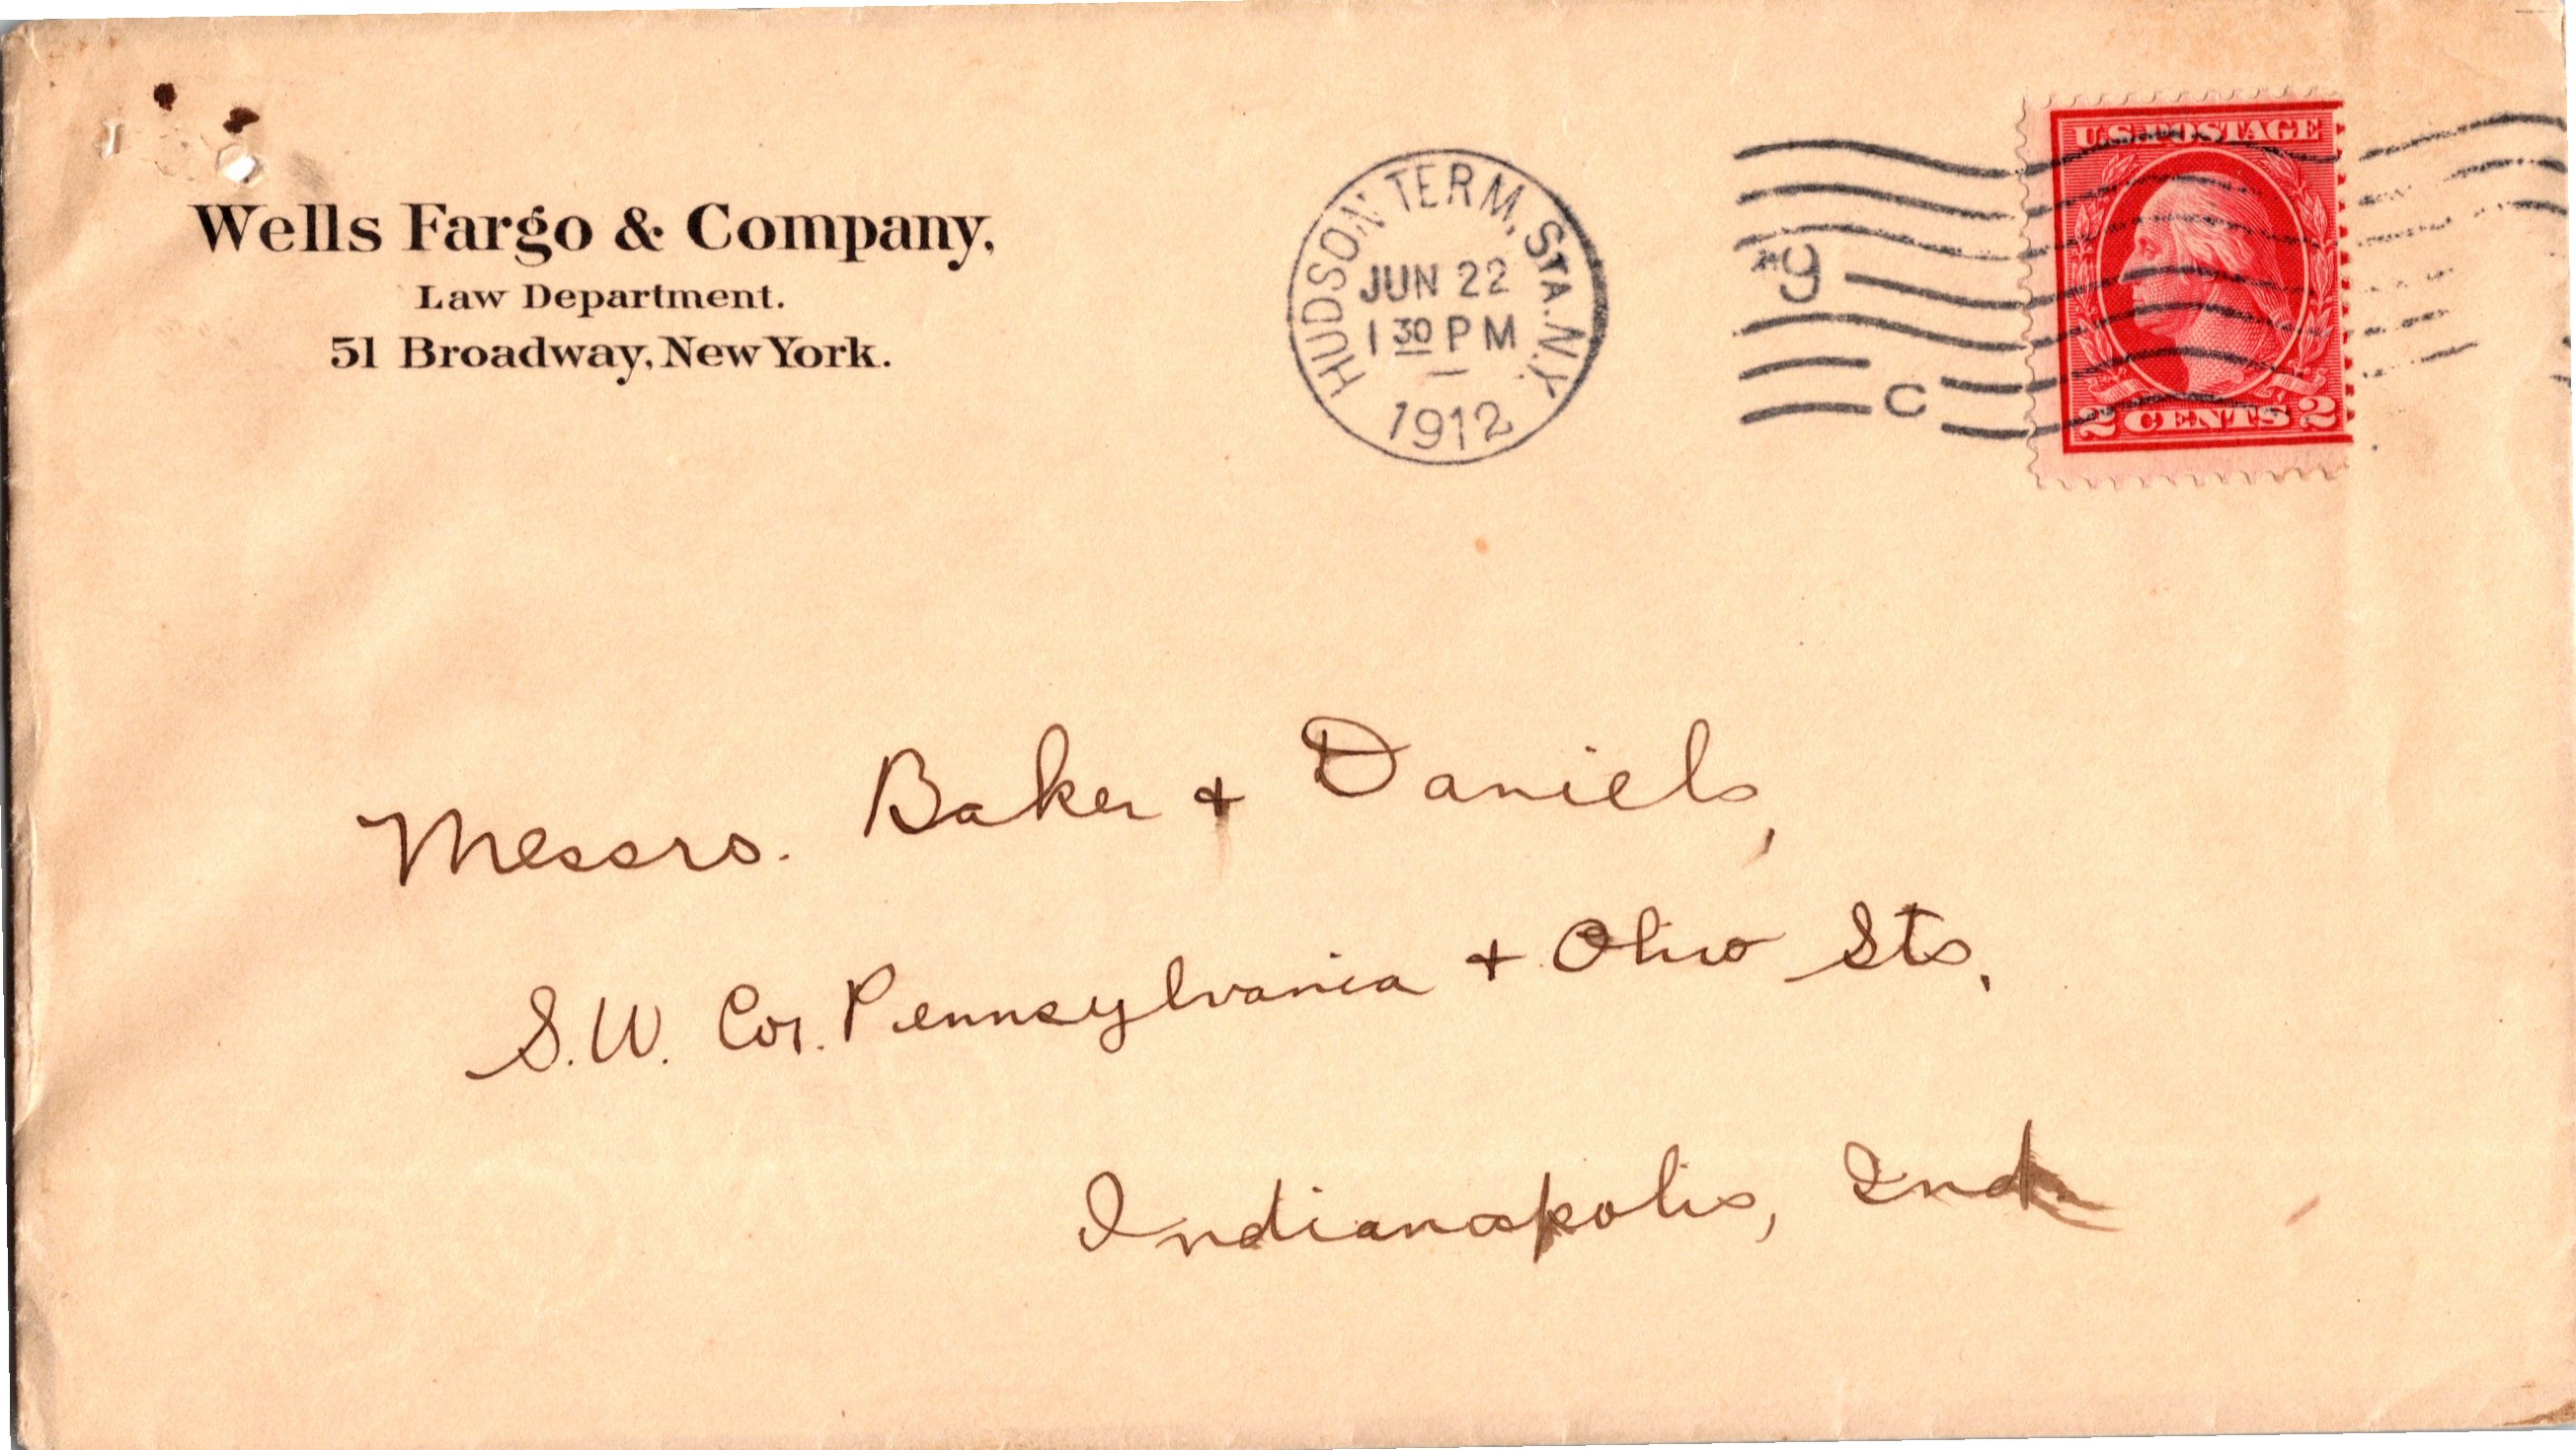 Wells Fargo & Company,
Law Department.
51 Broadway, New York.
HUDSON TERM. STA. N.Y.
JUN 22
1 30 PM
1912
9
C
U.S. POSTAGE
2 CENTS 2
Messrs. Baker & Daniels,
S.W. Cor. Pennsylvania & Ohio Sts.
Indianapolis, Ind.